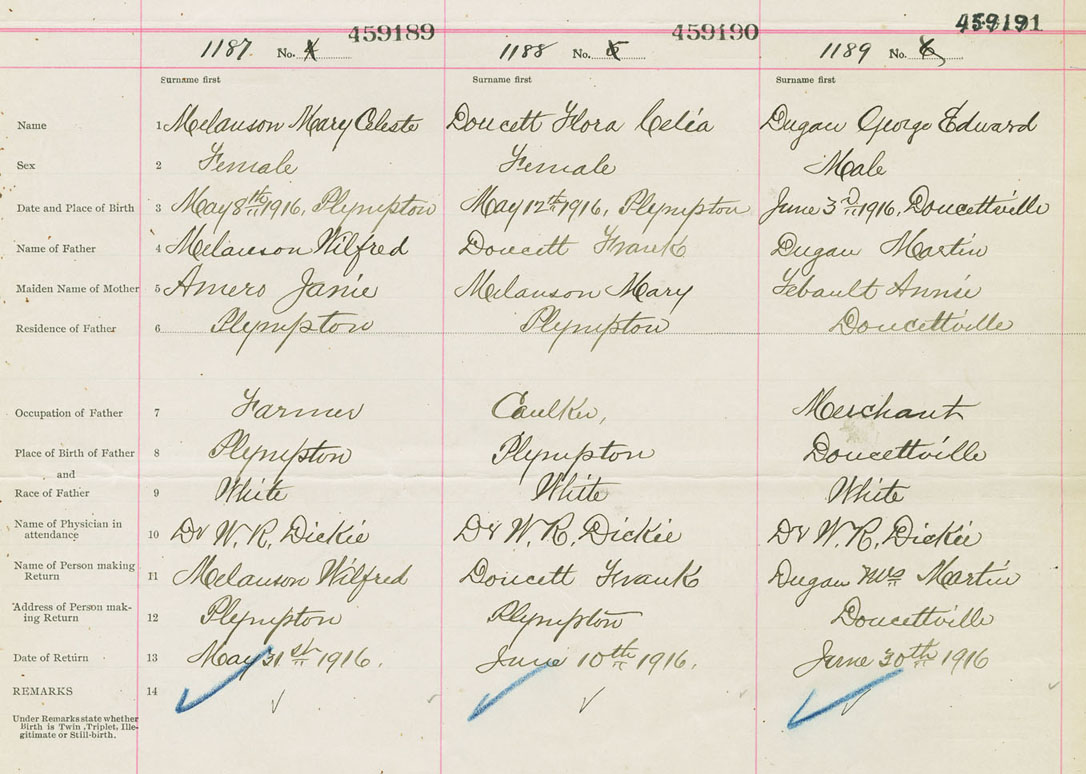 459189 459190 459191
1187. No. 4 1188 No. 5 1189 No. 6
Surname first Surname first Surname first
Name 1 Melanson Mary Celeste Doucett Flora Celia Dugan George Edward
Sex 2 Female Female Male
Date and Place of Birth 3 May 8th 1916, Plympton May 12th 1916, Plympton June 3d 1916, Doucettville
Name of Father 4 Melanson Wilfred Doucett Frank Dugan Martin
Maiden Name of Mother 5 Amero Janie Melanson Mary Tebault Annie
Residence of Father 6 Plympton Plympton Doucettville
Occupation of Father 7 Farmer Caulker, Merchant
Place of Birth of Father 8 Plympton Plympton Doucettville
and
Race of Father 9 White White White
Name of Physician in
attendance 10 Dr W. R. Dickie Dr W. R. Dickie Dr W. R. Dickie
Name of Person making
Return 11 Melanson Wilfred Doucett Frank Dugan Mrs Martin
Address of Person mak-
ing Return 12 Plympton Plympton Doucettville
Date of Return 13 May 31st 1916. June 10th 1916. June 30th 1916
REMARKS 14
Under Remarks state whether
Birth is Twin, Triplet, Ille-
gitimate or Still-birth.